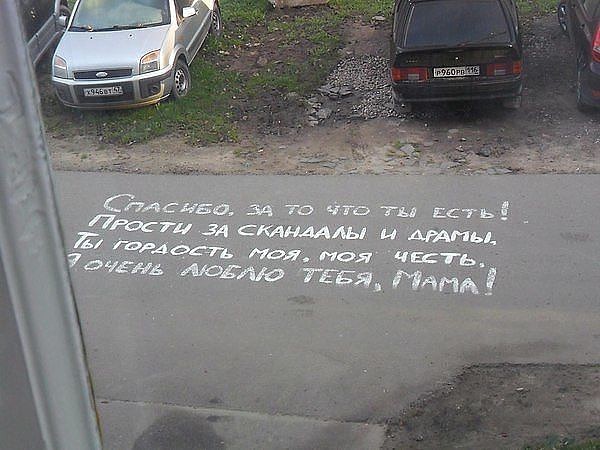 Х946ВТ 47
Р960РВ 116
СПАСИБО, ЗА ТО ЧТО ТЫ ЕСТЬ!
ПРОСТИ ЗА СКАНДАЛЫ И ДРАМЫ,
ТЫ ГОРДОСТЬ МОЯ, МОЯ ЧЕСТЬ.
Я ОЧЕНЬ ЛЮБЛЮ ТЕБЯ, МАМА!